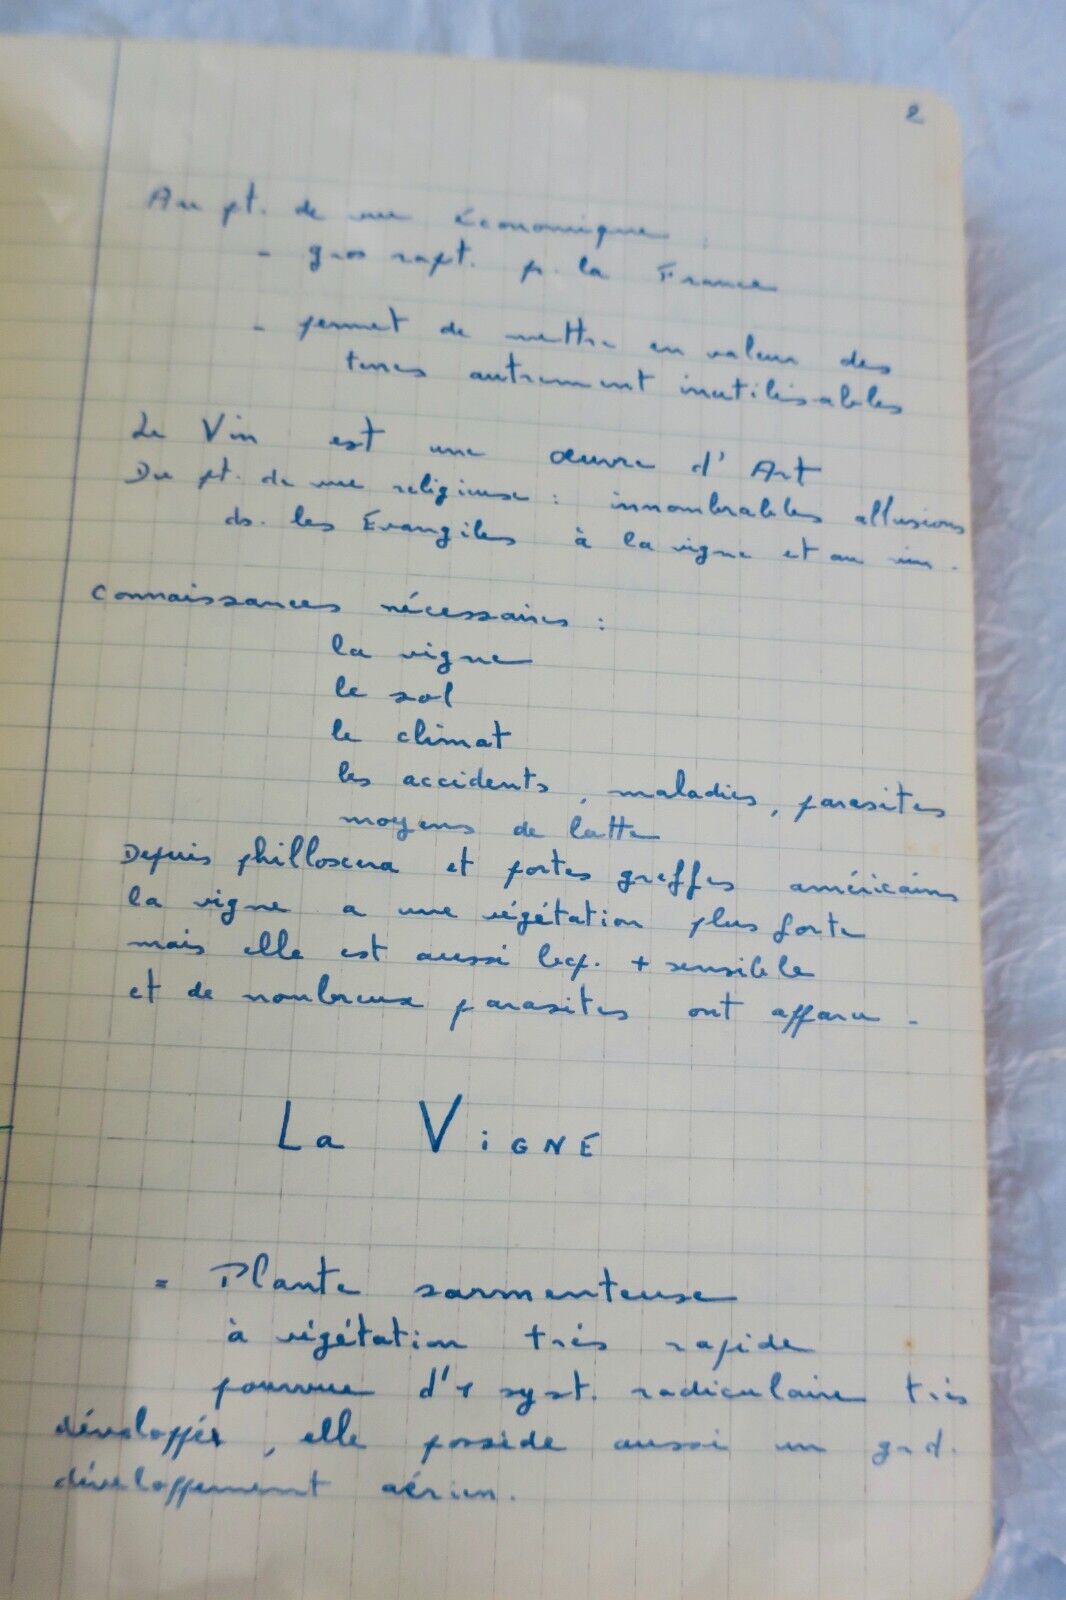 2
Au pt. de vue économique :
- gros rapt. p. la France
- permet de mettre en valeur des
terres autrement inutilisables
Le Vin est une œuvre d'Art
Du pt. de vue religieuse : innombrables allusions
ds. les Évangiles à la vigne et au vin.
Connaissances nécessaires :
la vigne
le sol
le climat
les accidents, maladies, parasites
moyens de lutte
Depuis philloxera et portes greffes américains
la vigne a une végétation plus forte
mais elle est aussi bcp. + sensible
et de nombreux parasites ont apparu.
La VIGNE
= Plante sarmenteuse
à végétation très rapide
pourvue d'1 syst. radiculaire très
développés, elle possède aussi un grd.
développement aérien.